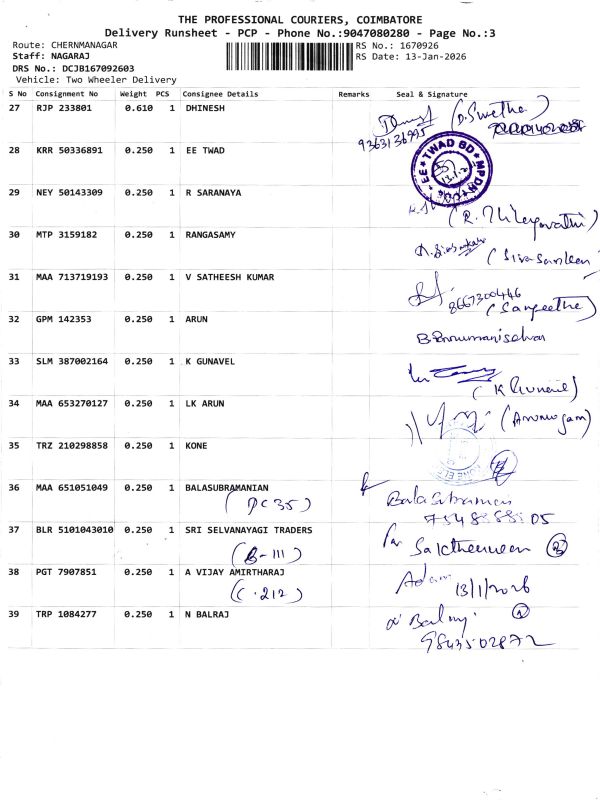 THE PROFESSIONAL COURIERS, COIMBATORE
Delivery Runsheet - PCP - Phone No.:9047080280 - Page No.:3
Route: CHERNMANAGAR
RS No.: 1670926
Staff: NAGARAJ
RS Date: 13-Jan-2026
DRS No.: DCJB167092603
Vehicle: Two Wheeler Delivery
S No Consignment No Weight PCS Consignee Details Remarks Seal & Signature
27 RJP 233801 0.610 1 DHINESH (D. Swetha)
9363136995
28 KRR 50336891 0.250 1 EE TWAD
EE TWAD BD MPDN
29 NEY 50143309 0.250 1 R SARANAYA (R. Thilagavathi)
30 MTP 3159182 0.250 1 RANGASAMY (Sivasankari
31 MAA 713719193 0.250 1 V SATHEESH KUMAR
8667300446
(Sangeetha)
32 GPM 142353 0.250 1 ARUN B Ponnumaniselvan
33 SLM 387002164 0.250 1 K GUNAVEL
(K Gunavel)
34 MAA 653270127 0.250 1 LK ARUN (Arumugam)
35 TRZ 210298858 0.250 1 KONE
36 MAA 651051049 0.250 1 BALASUBRAMANIAN Balasubraman
(DC 35) 7548888505
37 BLR 5101043010 0.250 1 SRI SELVANAYAGI TRADERS
(B-111)
38 PGT 7907851 0.250 1 A VIJAY AMIRTHARAJ
(C.212) 13/1/2026
39 TRP 1084277 0.250 1 N BALRAJ Balraj
9843502872